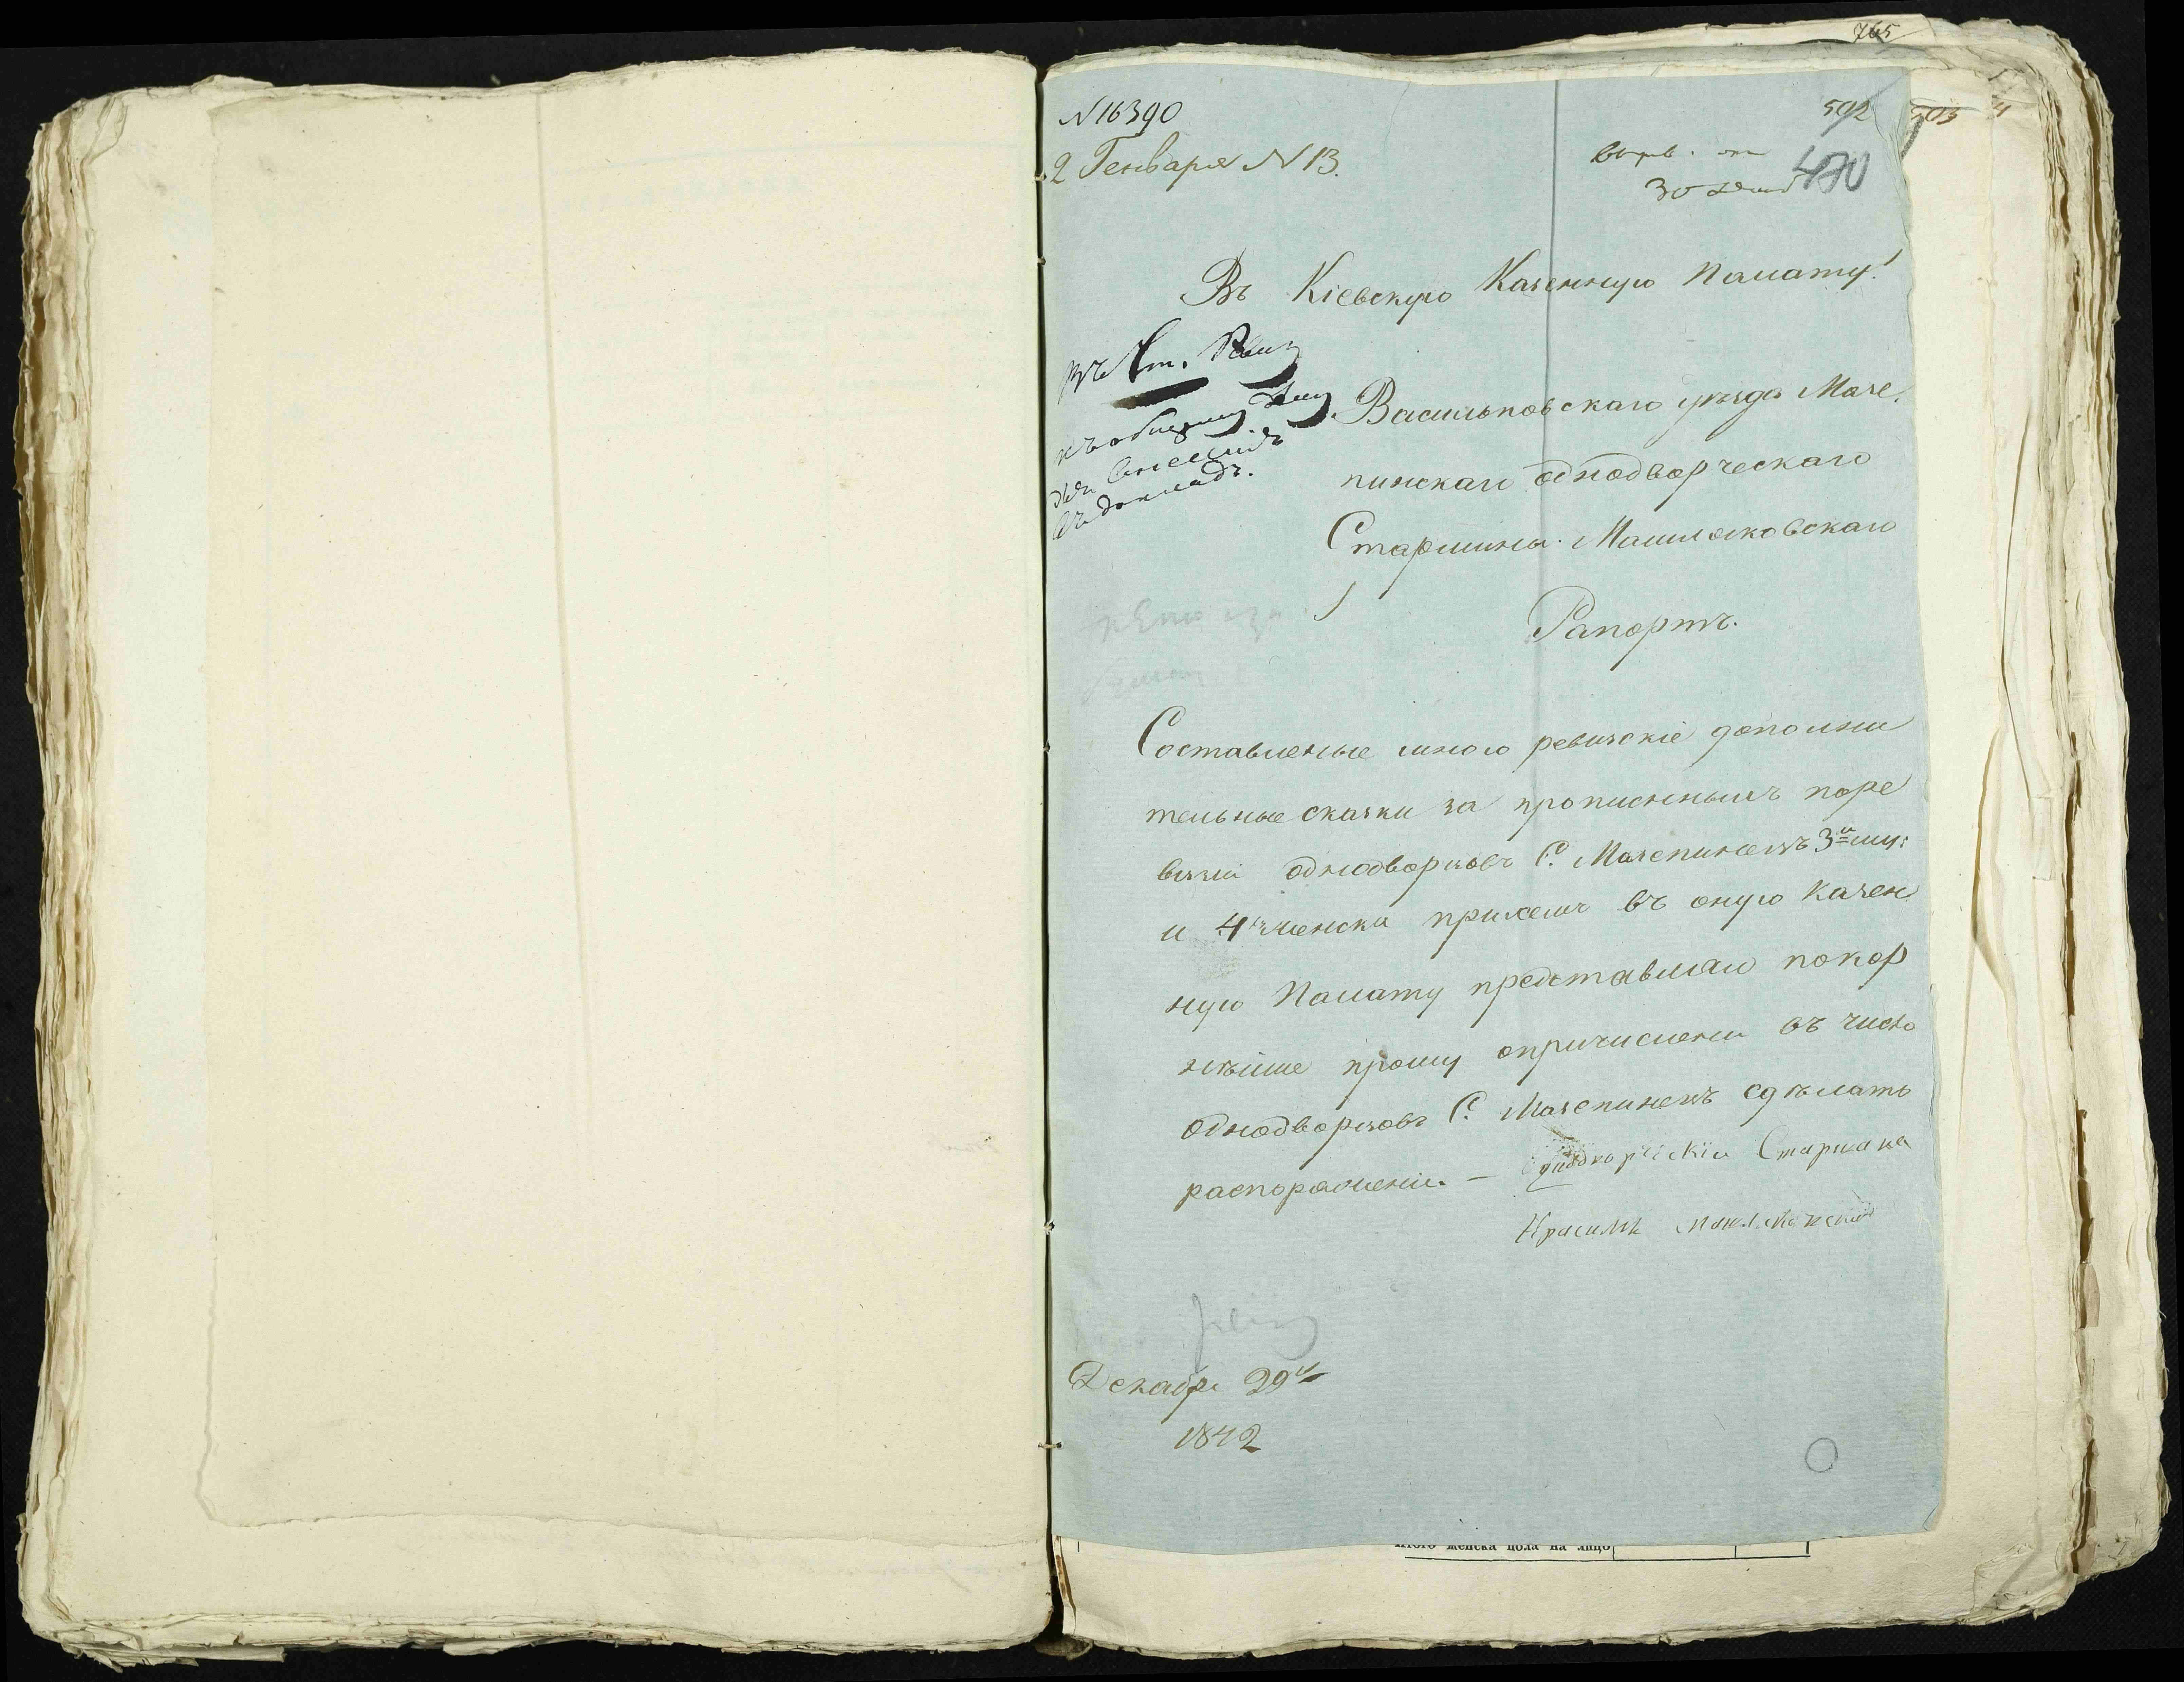 765
№ 16390
592
503
2 Генваря № 13.
470
30
Въ Кіевскую Казенную Палату!
Въ Ст. Ревиз
къ общему
для
въ докладъ.
Васильковскаго уѣзда Мазе,
пинскаго однодворческаго
Старшины Машляковскаго
Рапортъ.
Составленые мною ревизскіе дополни
тельные сказки за прописнныхъ поре
визіи однодворцовъ С. Мазепинецъ 3и муж:
и 4 женска при семъ въ оную Казен
ную Палату представляю покор
нѣише прошу опричислени въ число
однодворцовъ С. Мазепинецъ сдѣлать
распоряжение. — Однодворчіскіи Старшина
Декабря 29
1842
Итого женска пола на лицо